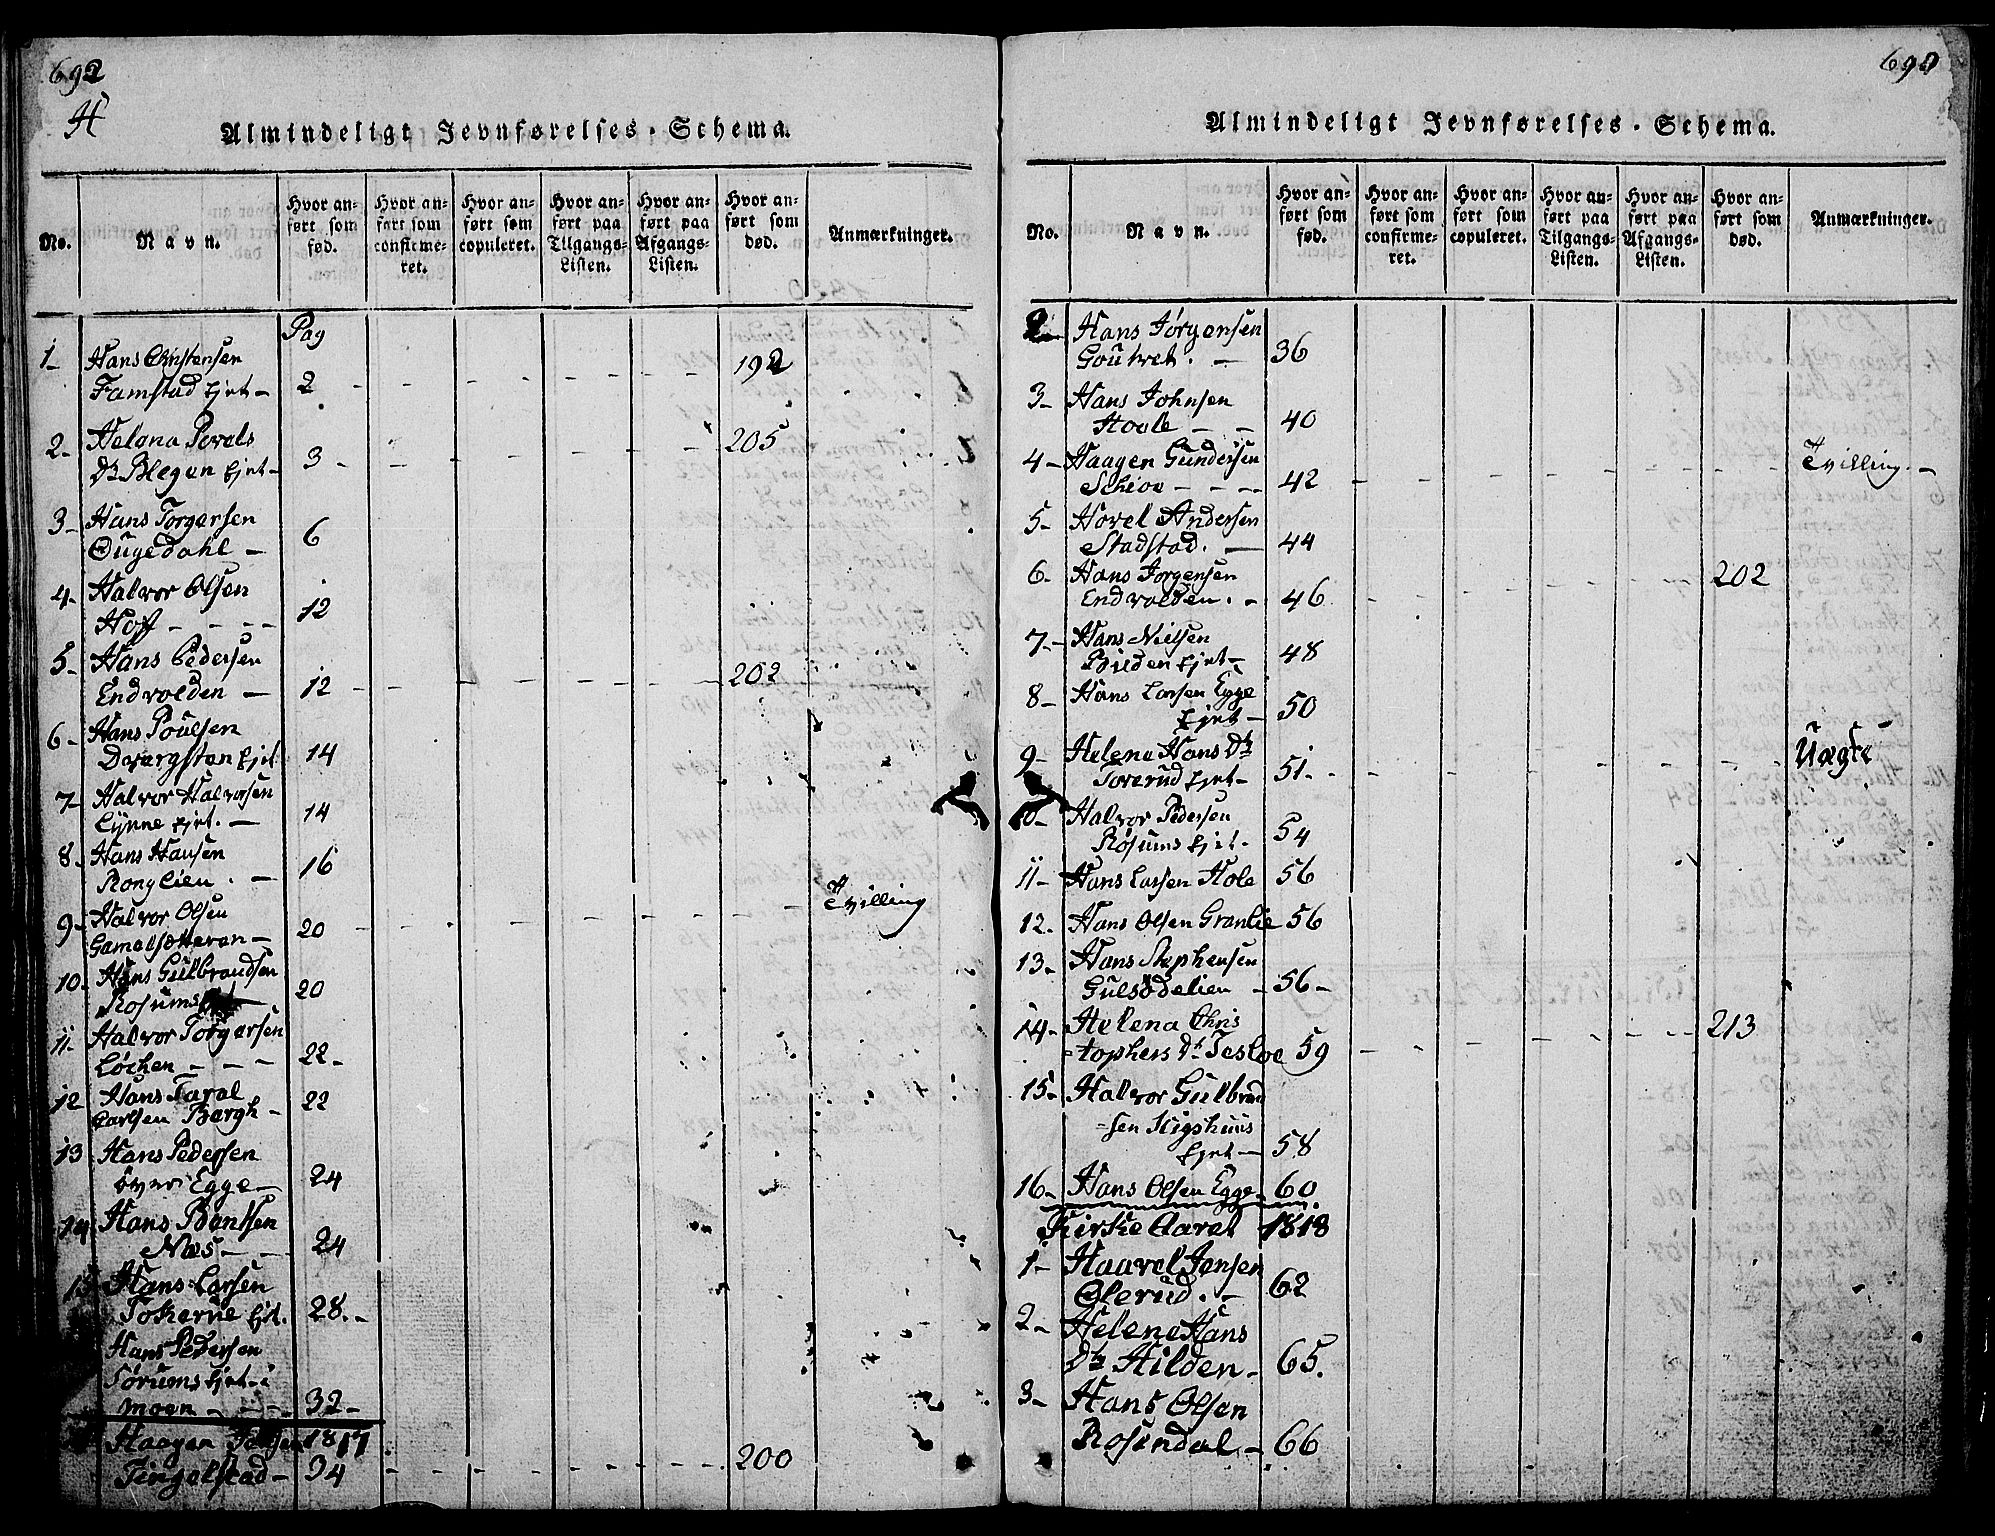 692
H
Almindeligt Jevnførelses-Schema.
No. Navn. Hvor anført som fød. Hvor anført som confirmeret. Hvor anført som copuleret. Hvor anført paa Tilgangs-Listen. Hvor anført paa Afgangs-Listen. Hvor anført som død. Anmærkninger.
Pag
1- Hans Christensen
Famstad Ejet - 2 - - - - - - - - 192
2- Helena Povels
Dr Blegen Ejet - 3 - - - - - - - - 205
3- Hans Torgersen
Ougedahl - 6
4- Halvor Olsen
Hoff - - - - 12
5- Hans Pedersen
Endvolden - 12 - - - - - - - 202
6- Hans Poulsen
Dvergsten Ejet 14
7- Halvor Halvorsen
Lynne Ejet. - 14
8- Hans Hansen
Ronglien. - 16
9- Halvor Olsen
- 20 - - - - - - - - Tvilling
10- Hans Gulbrandsen
Rosums 20
11- Halvor Torgersen
Løchen - - - 22-
12 Hans Taral
Carlsen Bergh - 22
13 Hans Pedersen
øvre Egge - 24
14 Hans Bentsen
Næs - - 24
15 Hans Larsen
Tokerue Ejt. 28.-
Hans Pedersen
Sørums Ejet i
moen - - - 32-
Haagen 1817
Tingelstad - 34 - - - - - - - - 200
690
Almindeligt Jevnførelses-Schema.
No. Navn. Hvor anført som fød. Hvor anført som confirmeret. Hvor anført som copuleret. Hvor anført paa Tilgangs-Listen. Hvor anført paa Afgangs-Listen. Hvor anført som død. Anmærkninger.
2 Hans Jørgensen
- 36
3- Hans Johnsen
Hoole - - 40
4- Haagen Gundersen
Schiøe - - - 42 - - - - - - - - - Tvilling. -
5- Hovel Andersen
Stadstad. - 44
6- Hans Jørgensen
Endvolden. - 46 - - - - - - - - 202
7- Hans Nielsen
Bilden Ejet - 48
8- Hans Larsen Egge
Ejet - 50
9- Helene Hans Dtr
Toverud Ejet - 51. - - - - - - - - - Uægte
10- Halvor Pedersen
Røsums Ejet. 54
11- Hans Larsen Hole 56
12. Hans Olsen Granlie 56
13- Hans Stephensen
Gulsødelien - 56-
14- Helena Chris
=tophers Dr Tesloe 59 - - - - - - - - 213
15- Halvor Gulbrand
=sen
Ejet - 58
16- Hans Olsen Egge - 60
Kirke Aaret 1818
1- Haavel Jensen
Olerud. - 62
2- Helene Hans
Dtr Hilden - 65.
3- Hans Olsen
Rosendal - 66